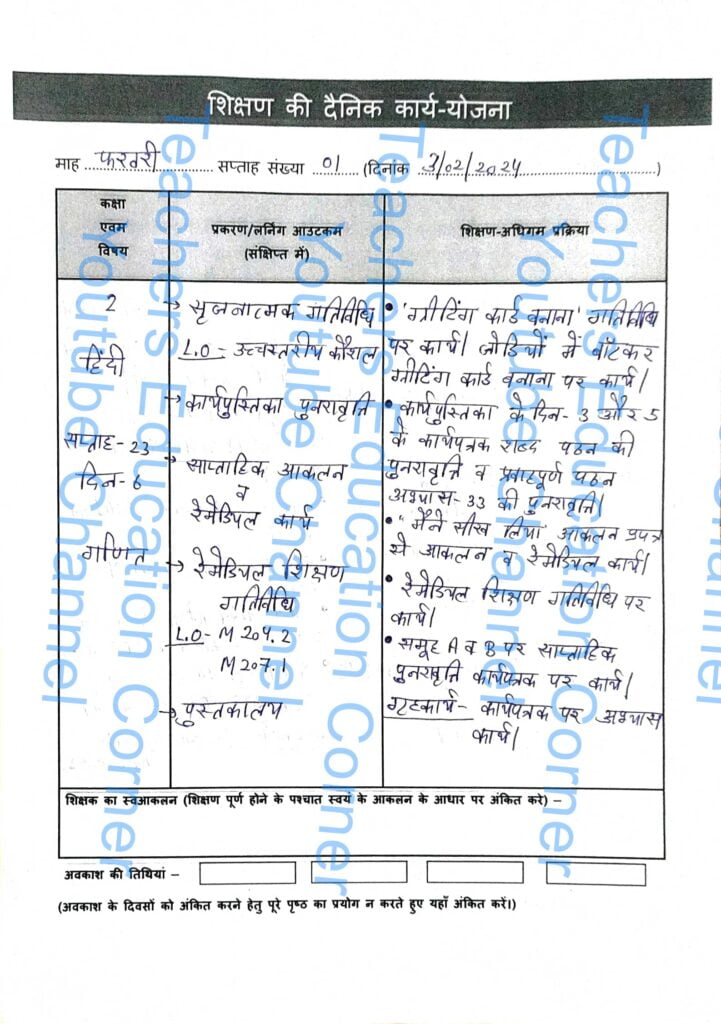 शिक्षण की दैनिक कार्य-योजना
माह फरवरी सप्ताह संख्या 01 (दिनांक 3/02/2024)
कक्षा
एवम
विषय
प्रकरण/लर्निंग आउटकम
(संक्षिप्त में)
शिक्षण-अधिगम प्रक्रिया
2
हिंदी
सप्ताह-23
दिन-6
गणित
→ सृजनात्मक गतिविधि
L.O - उच्चस्तरीय कौशल
→ कार्यपुस्तिका पुनरावृत्ति
→ साप्ताहिक आकलन
व
रेमेडियल कार्य
→ रेमेडियल शिक्षण
गतिविधि
L.O- M 204.2
M 207.1
→ पुस्तकालय
• 'ग्रीटिंग कार्ड बनाना' गतिविधि
पर कार्य। जोडियों में बाँटकर
ग्रीटिंग कार्ड बनाना पर कार्य।
• कार्यपुस्तिका के दिन- 3 और 5
के कार्यपत्रक शब्द पठन की
पुनरावृत्ति व प्रवाहपूर्ण पठन
अभ्यास-33 की पुनरावृत्ति।
• "मैंने सीख लिया" आकलन प्रपत्र
से आकलन व रेमेडियल कार्य।
• रेमेडियल शिक्षण गतिविधि पर
कार्य।
• समूह A व B पर साप्ताहिक
पुनरावृत्ति कार्यपत्रक पर कार्य।
गृहकार्य- कार्यपत्रक पर अभ्यास
कार्य।
शिक्षक का स्वआकलन (शिक्षण पूर्ण होने के पश्चात स्वयं के आकलन के आधार पर अंकित करे) –
अवकाश की तिथियां –
(अवकाश के दिवसों को अंकित करने हेतु पूरे पृष्ठ का प्रयोग न करते हुए यहाँ अंकित करें।)
Teachers Education Corner
Youtube Channel
Teachers Education Corner
Youtube Channel
Teachers Education Corner
Youtube Channel